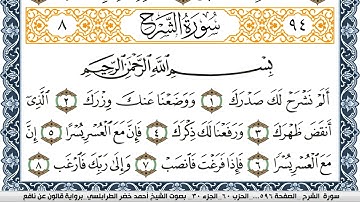 ٨ سُورَةُ الشَّرْحِ ٩٤
بِسْمِ اللَّهِ الرَّحْمَٰنِ الرَّحِيمِ
أَلَمْ نَشْرَحْ لَكَ صَدْرَكَ ١ وَوَضَعْنَا عَنكَ وِزْرَكَ ٢ الَّذِي
أَنقَضَ ظَهْرَكَ ٣ وَرَفَعْنَا لَكَ ذِكْرَكَ ٤ فَإِنَّ مَعَ الْعُسْرِ يُسْرًا ٥ إِنَّ
مَعَ الْعُسْرِ يُسْرًا ٦ فَإِذَا فَرَغْتَ فَانصَبْ ٧ وَإِلَىٰ رَبِّكَ فَارْغَب ٨
سورة الشرح الصفحة ٥٩٦... الحزب ٦٠ الجزء ٣٠ بصوت الشيخ أحمد خضر الطرابلسي برواية قالون عن نافع